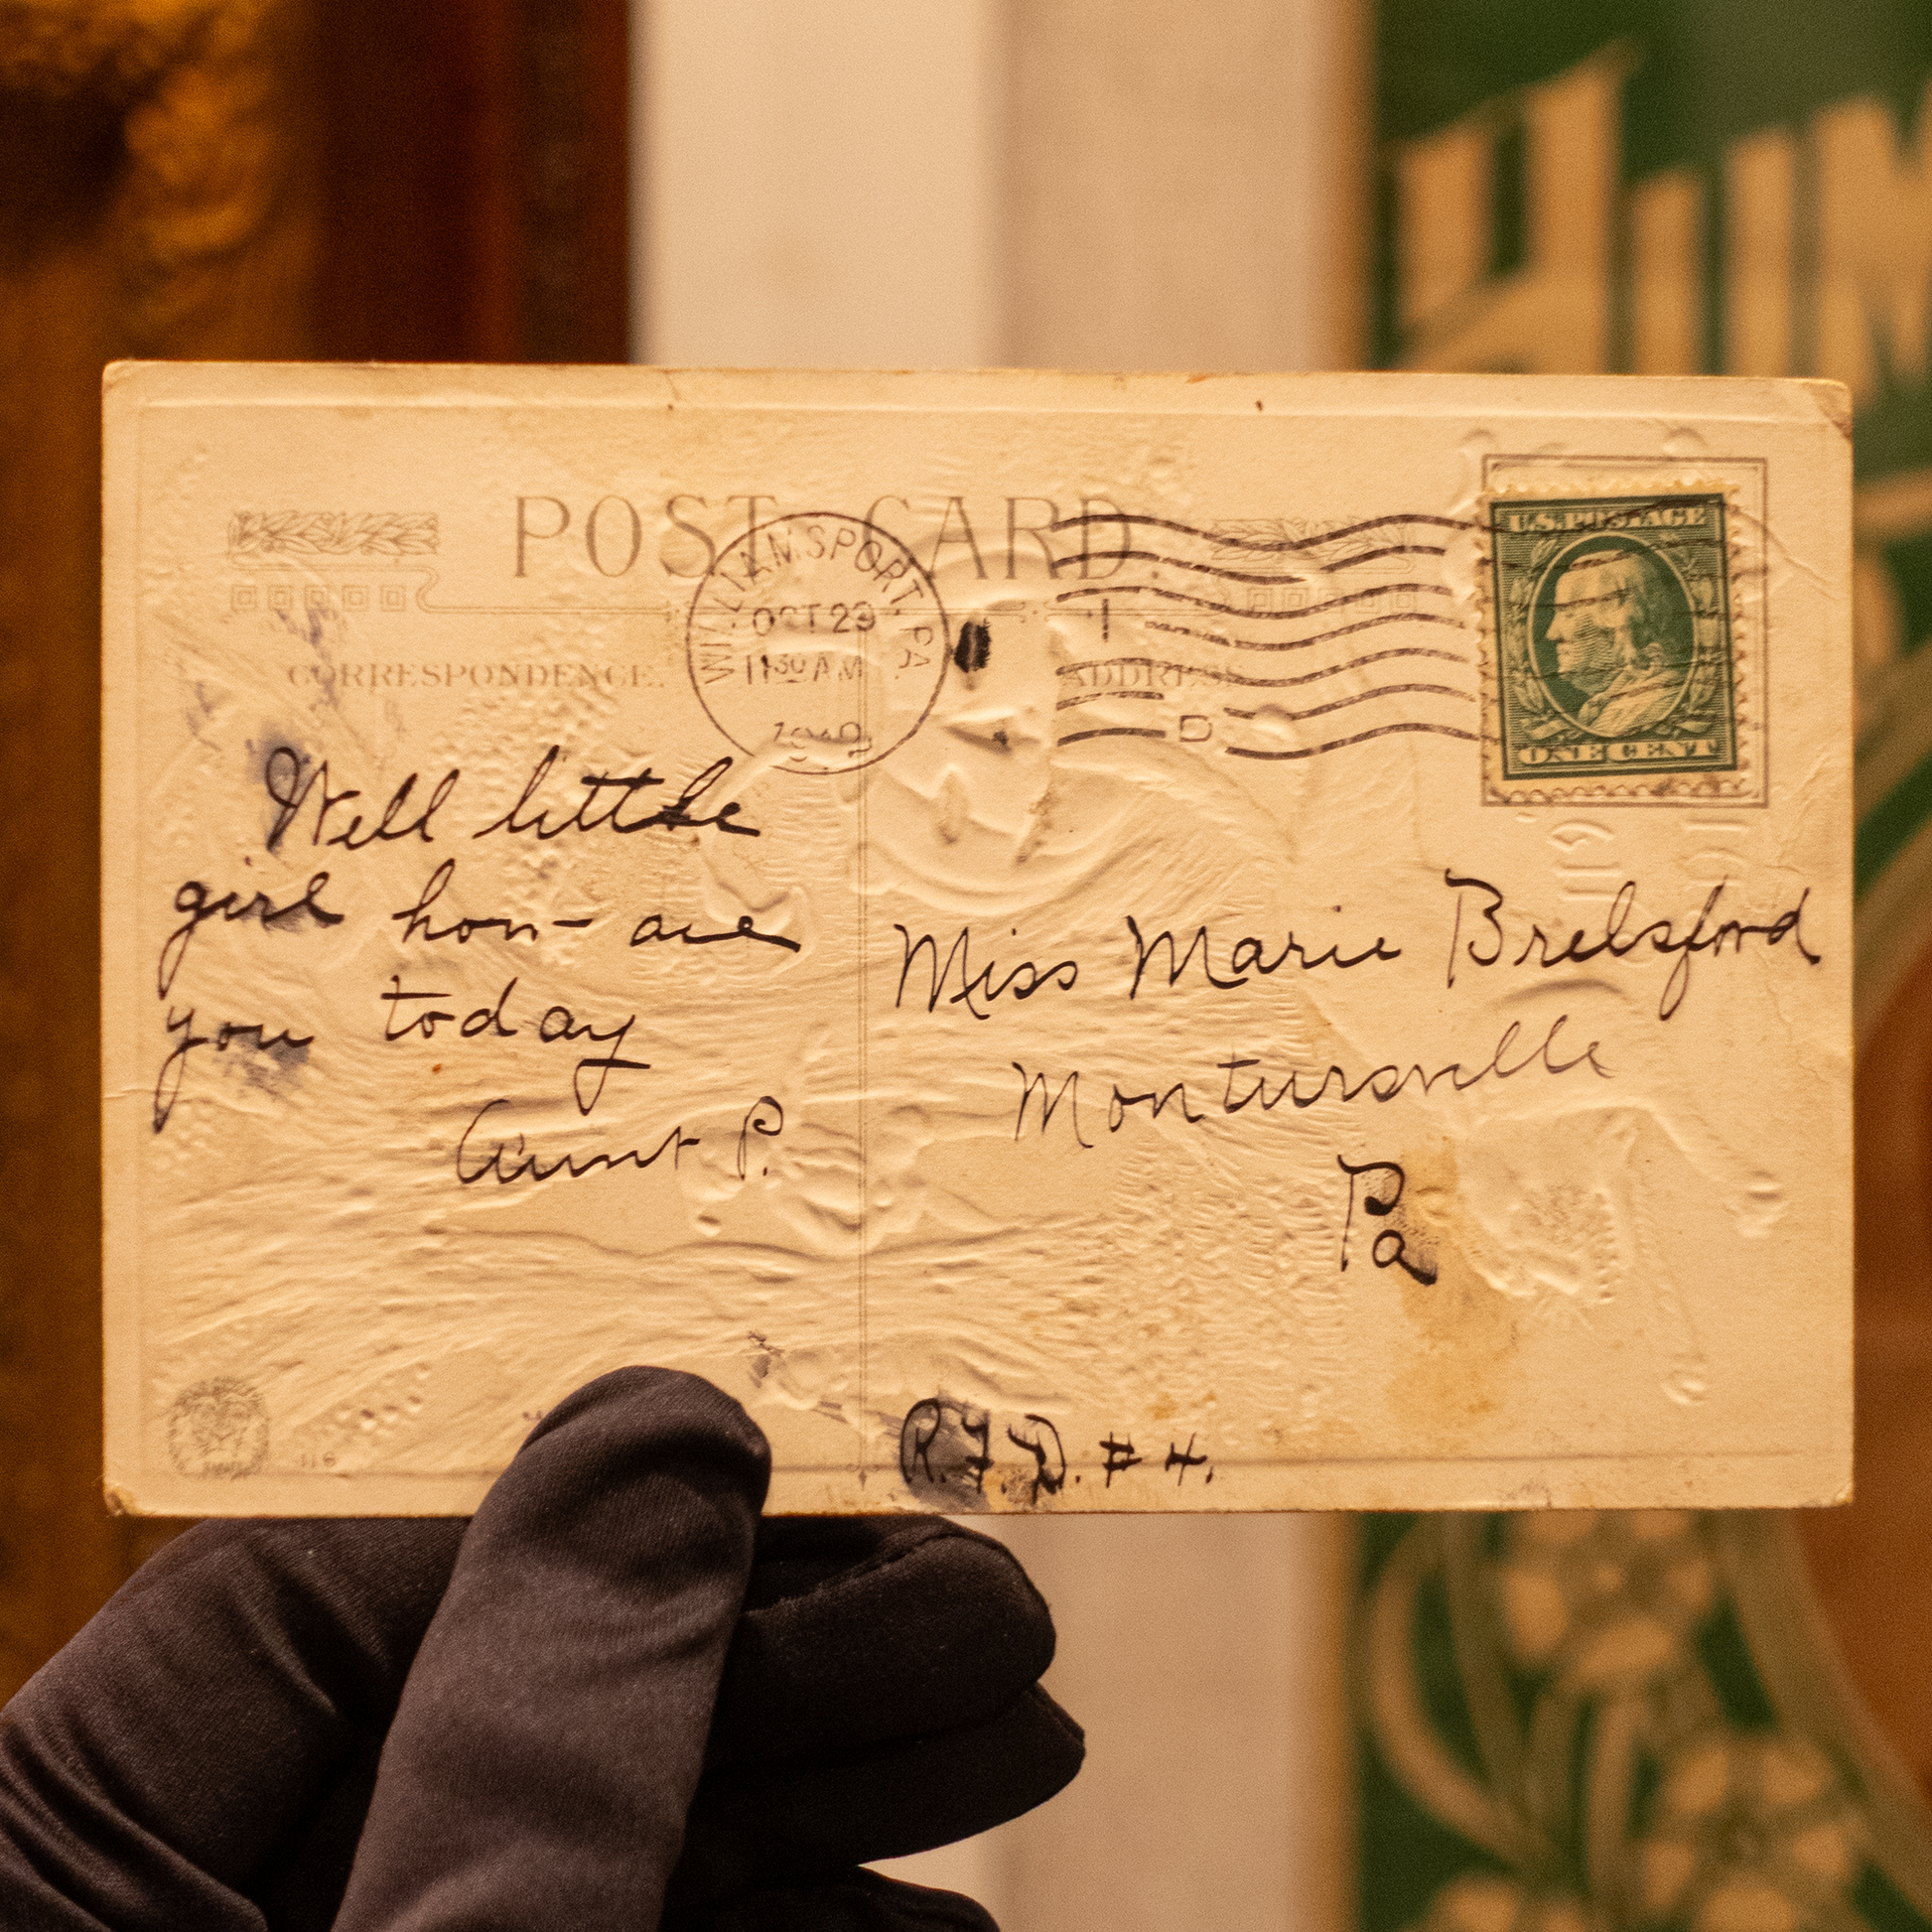 POST CARD.
WILLIAMSPORT, PA.
OCT 29
11 30 AM
1
D
U.S. POSTAGE
ONE CENT
CORRESPONDENCE.
ADDRESS
Well little
girl how are
you today
Aunt P.
Miss Marie Brelsford
Montursville
Pa
R.F.D. # 4.
116
HIM